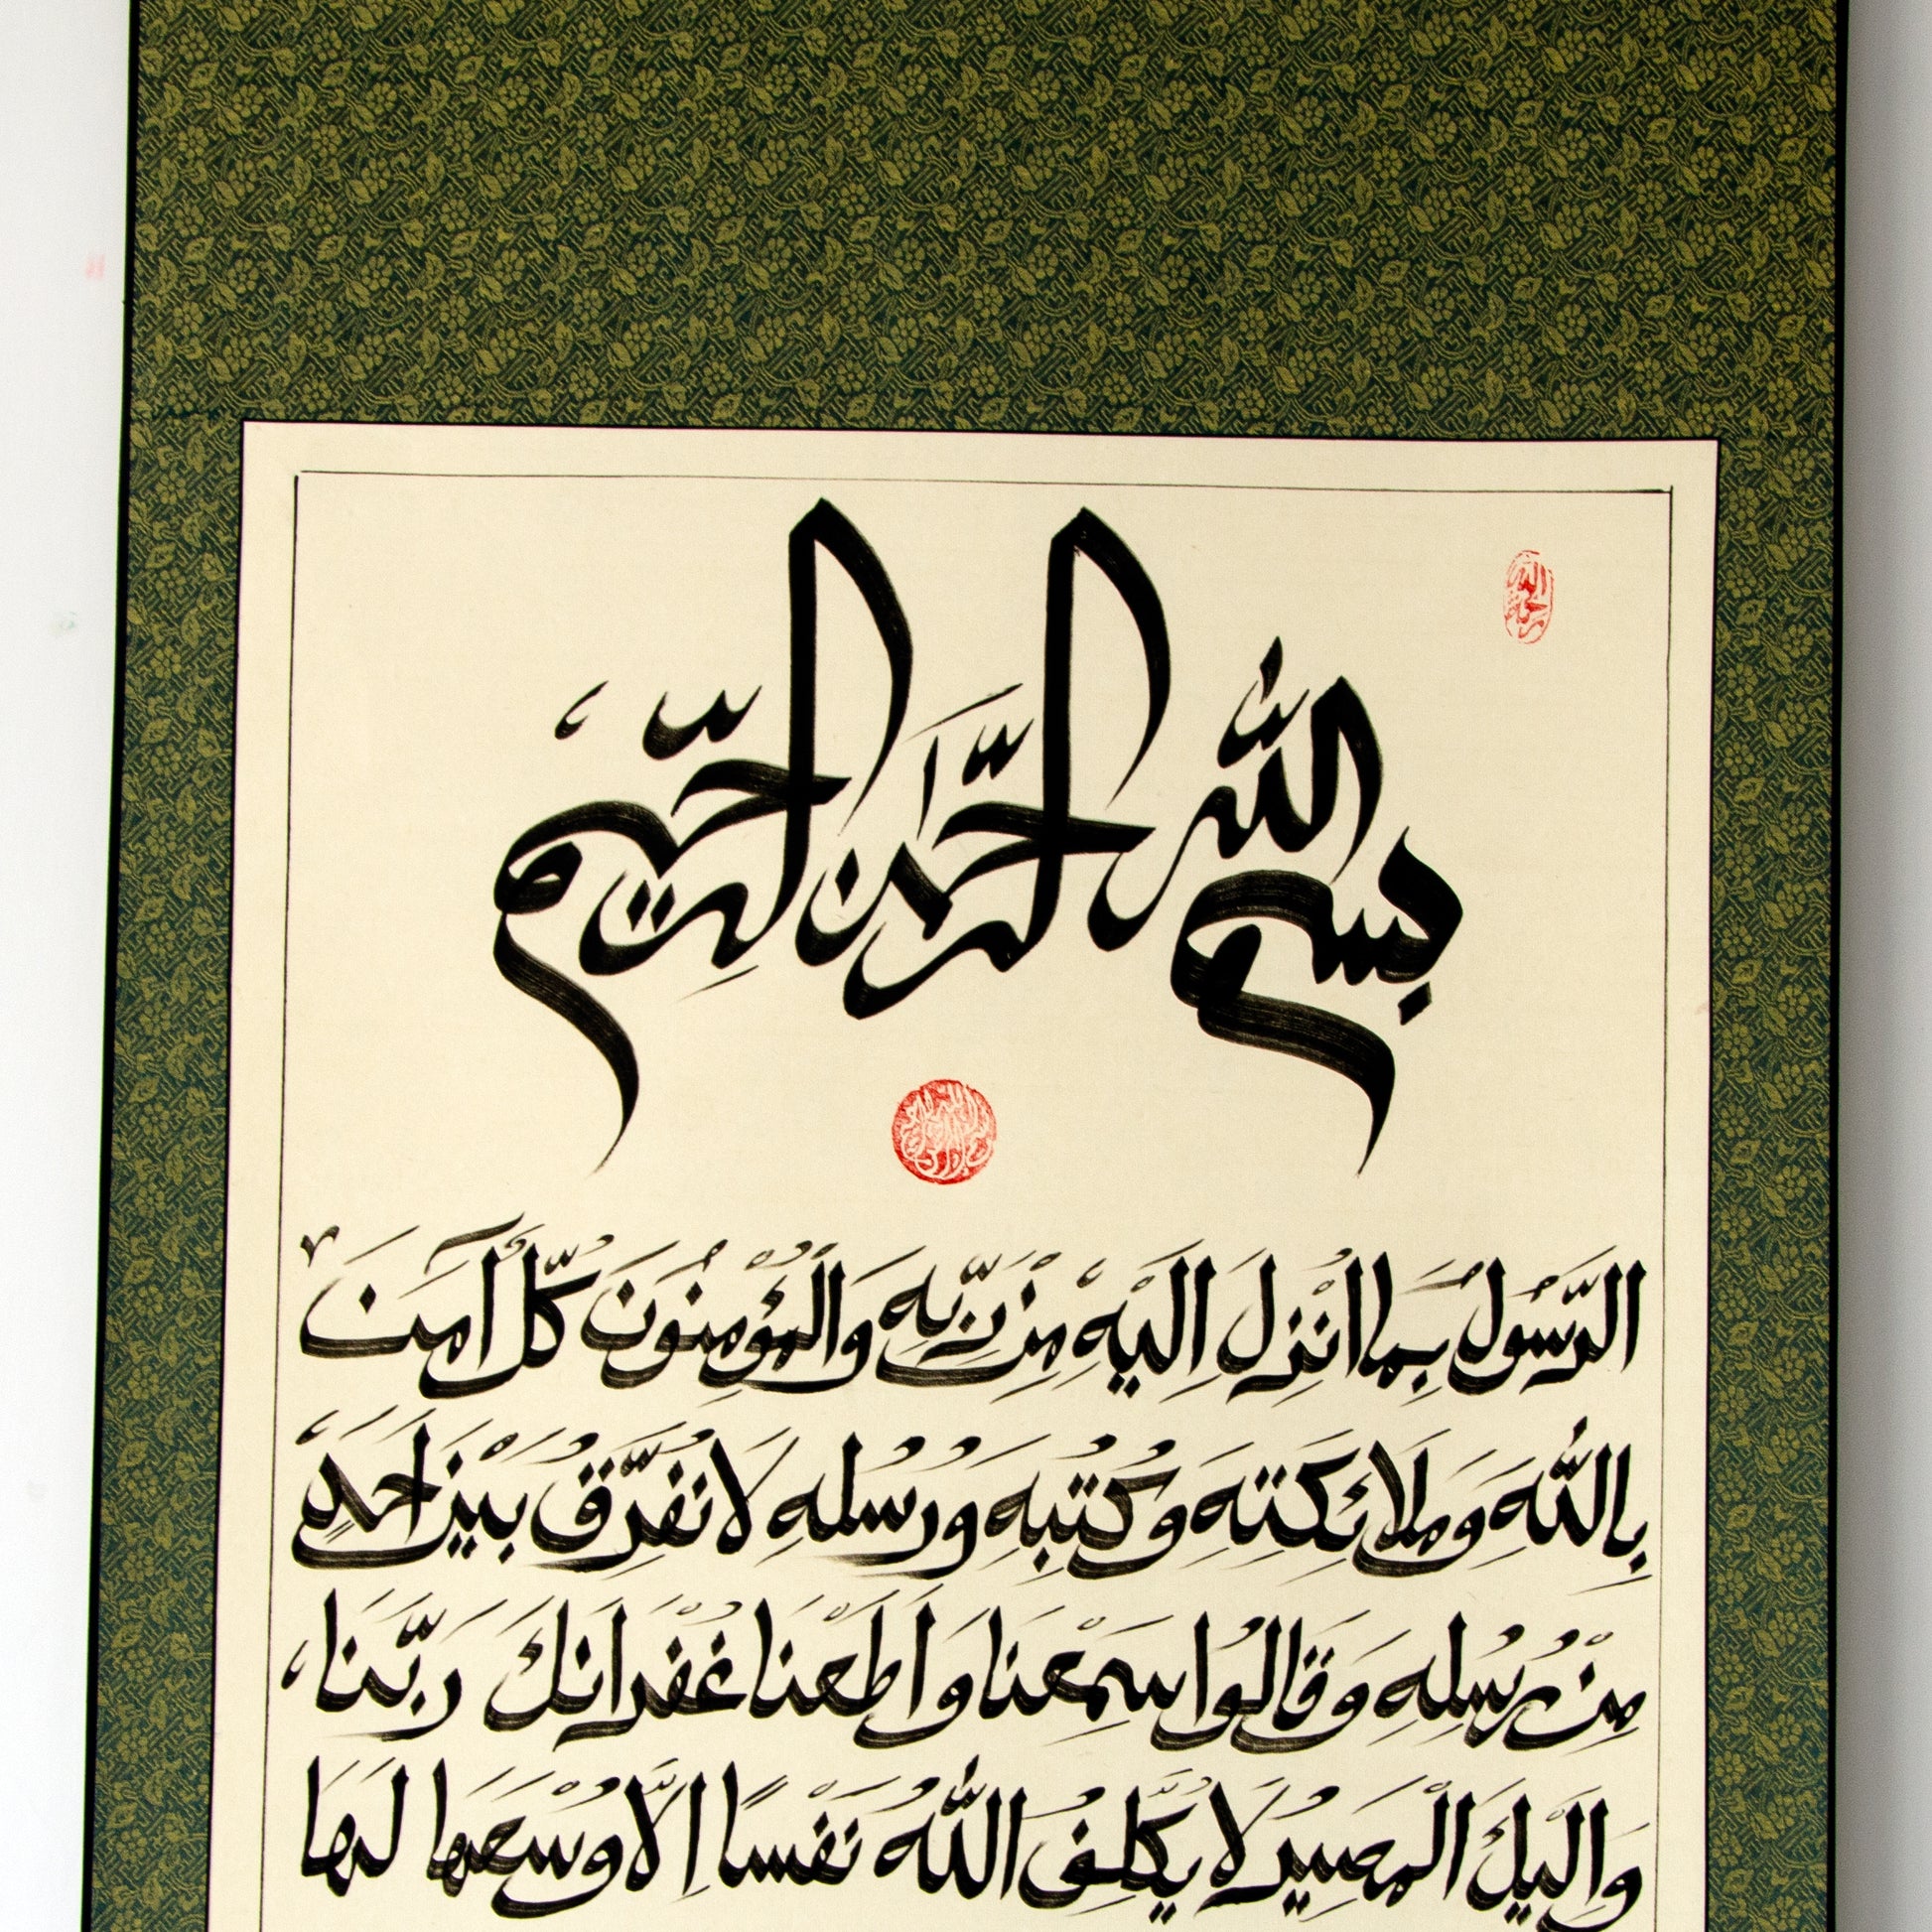 بسم الله الرحمن الرحيم
الرَّسُولُ بِمَا اُنْزِلَ اِلَيْهِ مِنْ رَبِّهِ وَالْمُؤْمِنُونَ كُلٌّ آمَنَ
بِاللّهِ وَمَلَائِكَتِهِ وَكُتُبِهِ وَرُسُلِهِ لَا نُفَرِّقُ بَيْنَ اَحَدٍ
مِنْ رُسُلِهِ وَقَالُوا سَمِعْنَا وَاَطَعْنَا غُفْرَانَكَ رَبَّنَا
وَاِلَيْكَ الْمَصِيرُ لَا يُكَلِّفُ اللّهُ نَفْسًا اِلَّا وُسْعَهَا لَهَا